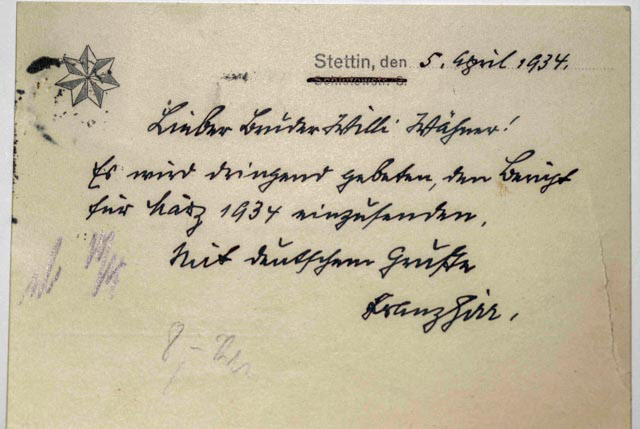 Stettin, den 5. April 1934.
Lieber Bruder Willi Wähner!
Es wird dringend gebeten, den Bericht
für März 1934 einzusenden.
Mit deutschem Gruße
Franz
8,-